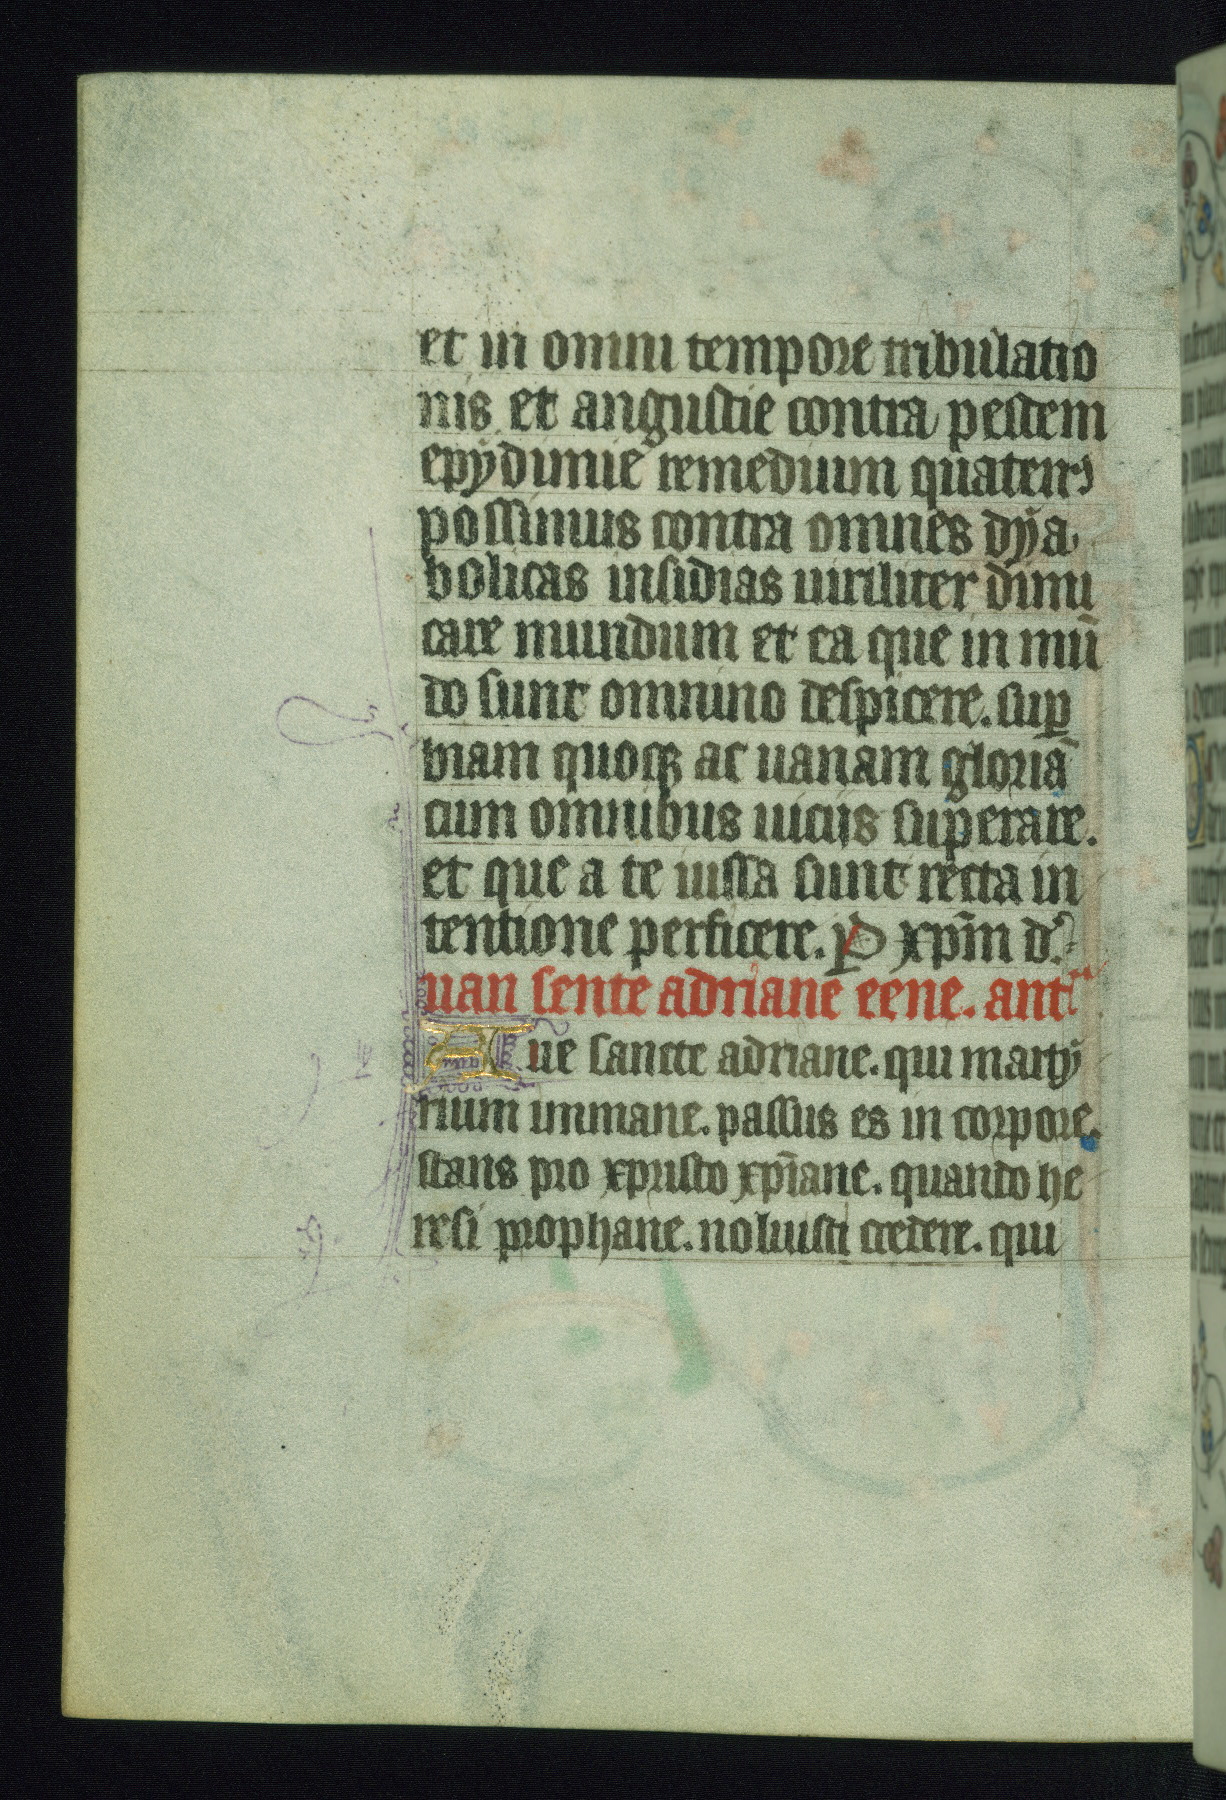 et in omni tempore tribulatio
nis et angustie contra pestem
epydimie remedium quaten9
possimus contra omnes dya
bolicas insidias uiriliter dimi
care mundum et ea que in mū
do sunt omnino despicere. sup̱
biam quoqꝫ ac uanam gloriā
cum omnibus uiciis superare.
et que a te iussa sunt recta in
tentione perficere. P xp̄m d.
uan sente adriane eene. ant
Aue sancte adriane. qui marty
rium immane. passus es in corpore.
stans pro xpristo xp̄iane. quando he
resi prophane. noluisti credere. qui